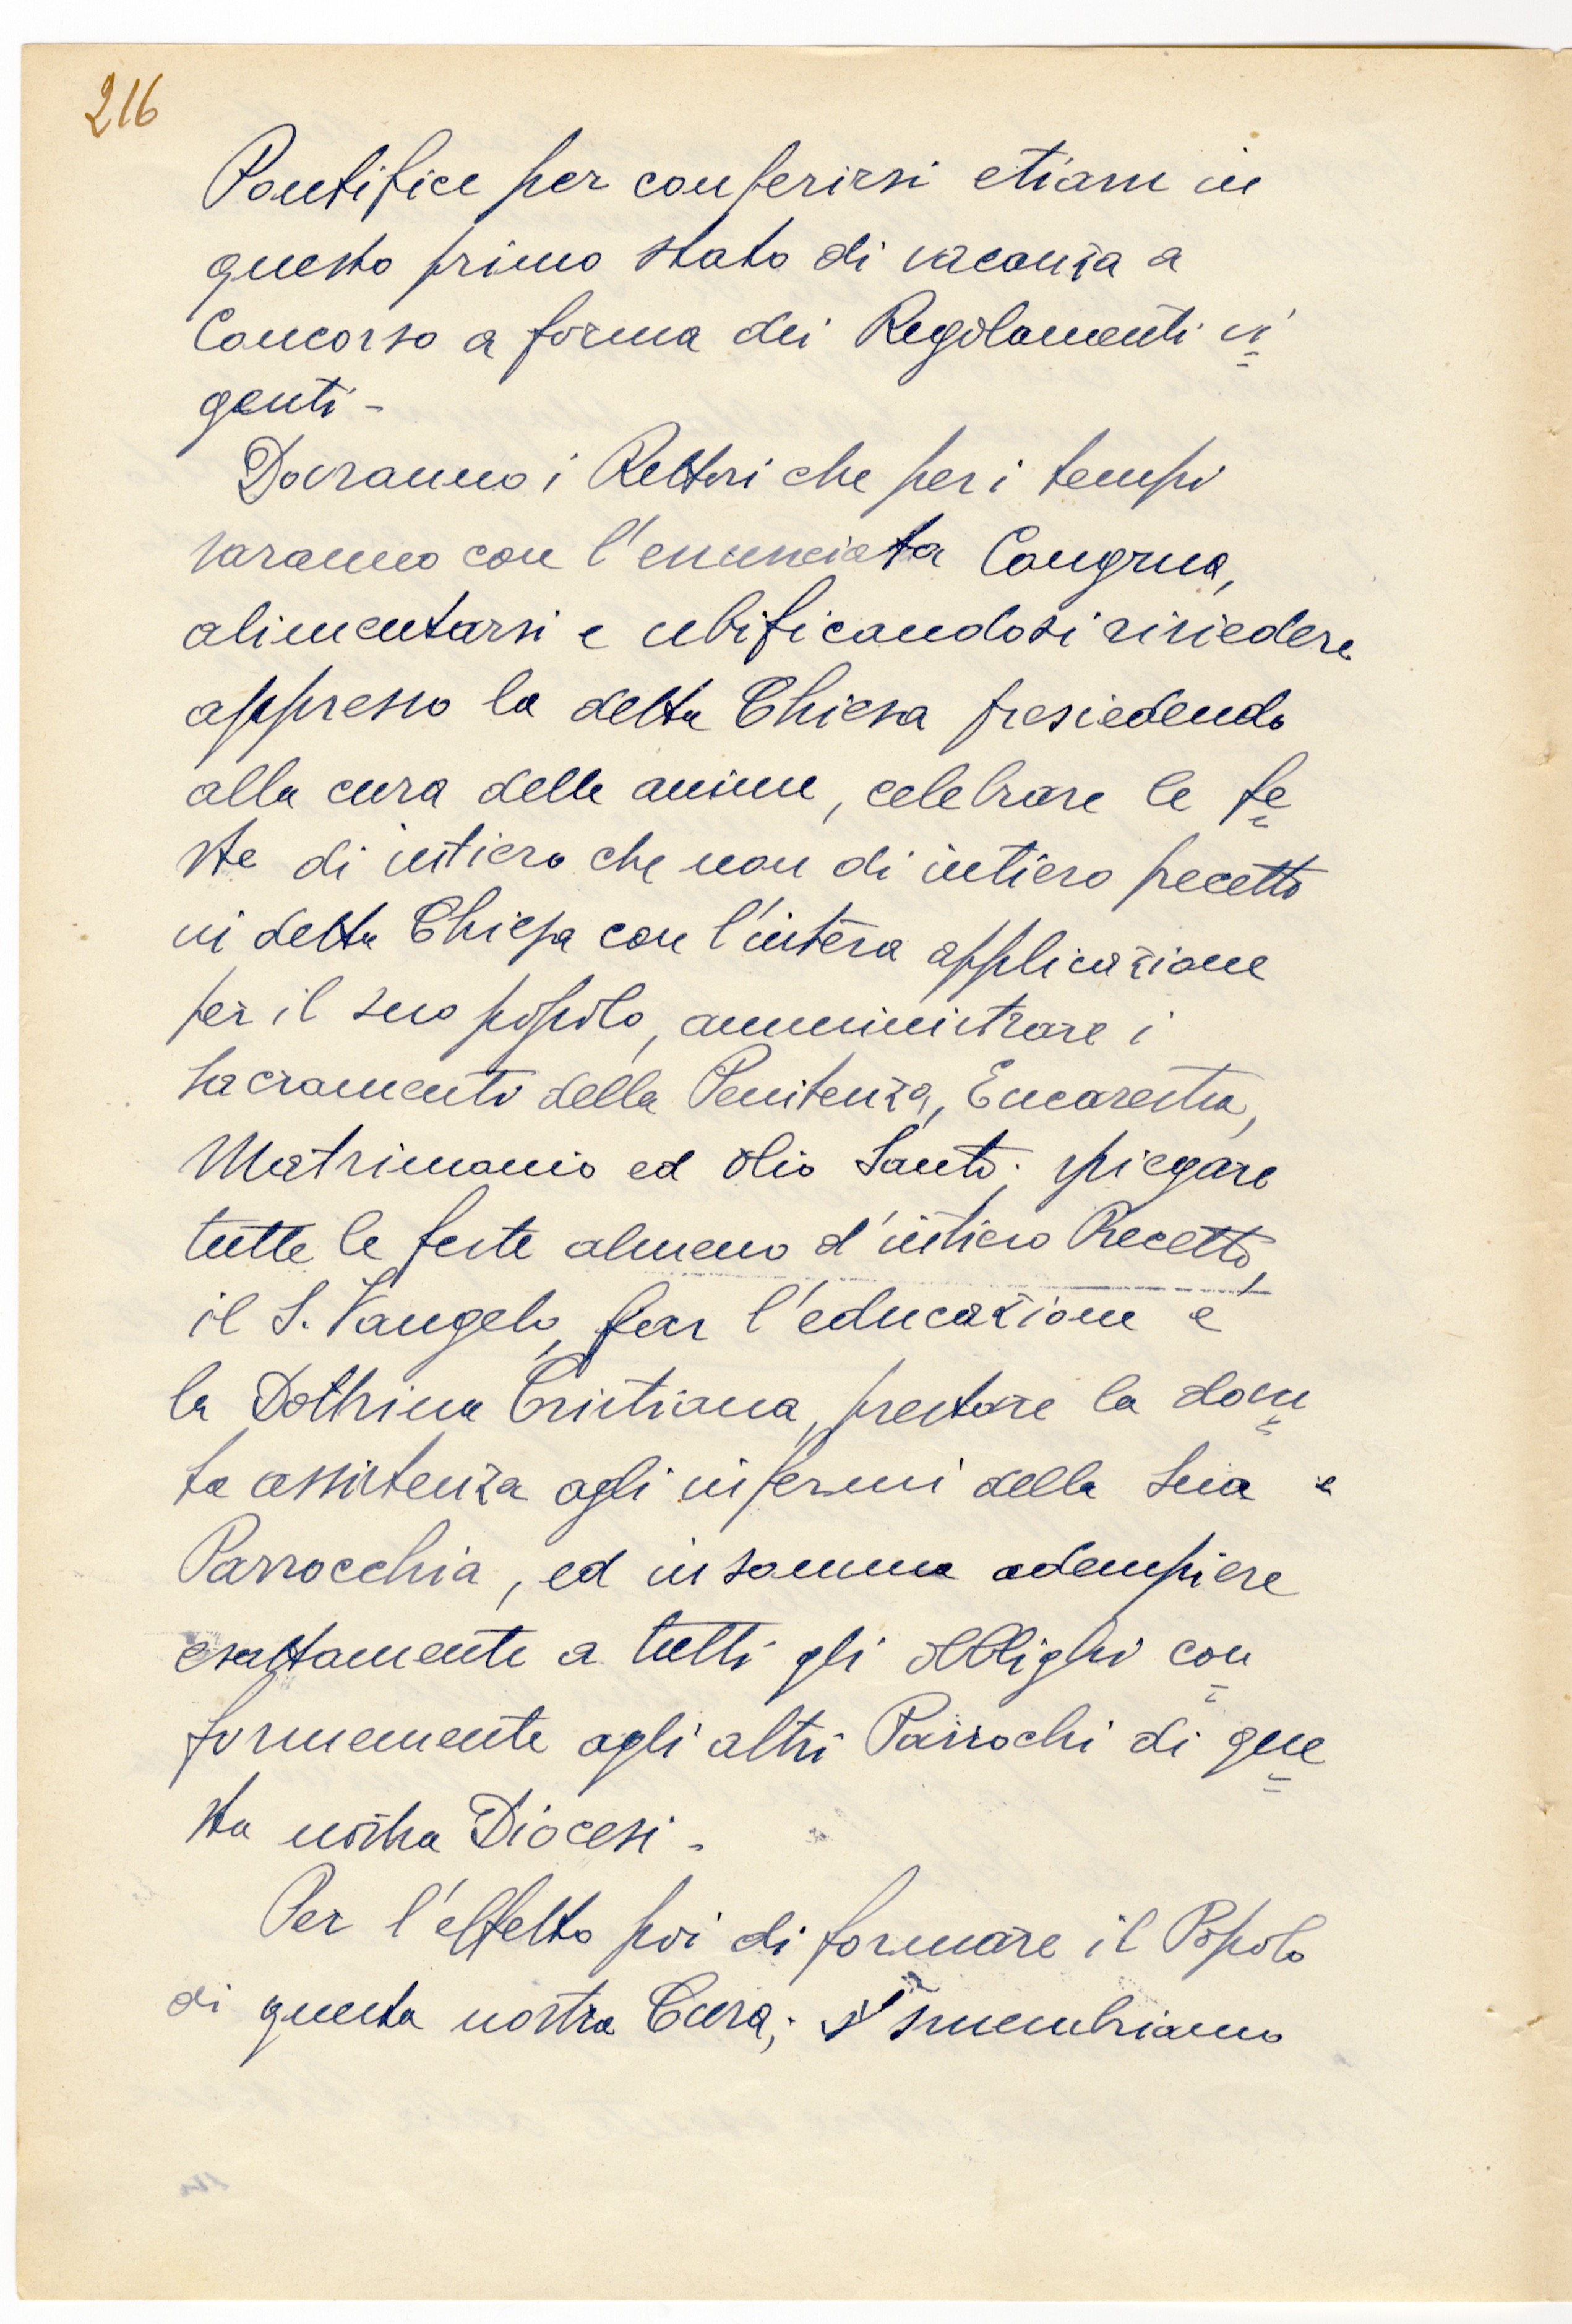 216
Pontifice per conferirsi etiam in
questo primo stato di vacanza a
Concorso a forma dei Regolamenti vi=
genti -
Dovranno i Rettori che per i tempi
saranno con l'enunciata Congrua,
alimentarsi e ubificandosi risiedere
appresso la detta Chiesa presiedendo
alla cura delle anime, celebrare le fe=
ste di intiero che non di intiero precetto
in detta Chiesa con l'intera applicazione
per il suo popolo, amministrare i
sacramenti della Penitenza, Eucarestia,
Matrimonio ed olio Santo; spiegare
tutte le feste almeno d'intiero Precetto,
il S. Vangelo, far l'educazione e
la Dottrina Cristiana, prestare la dovu=
ta assistenza agli infermi della sua
Parrocchia, ed in somma adempiere
esattamente a tutti gli obblighi con=
formemente agli altri Parrochi di que=
sta nostra Diocesi -
Per l'effetto poi di formare il Popolo
di questa nostra Cura; smembriamo